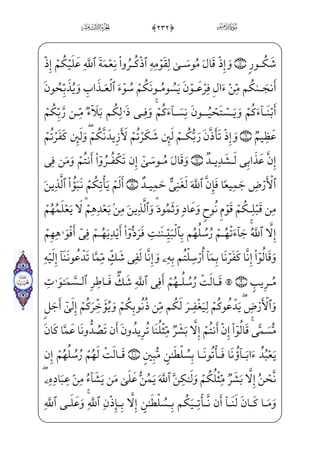 ﴿٢٣٢﴾
شَكُورٍ ۝٥ وَإِذْ قَالَ مُوسَىٰ لِقَوْمِهِ ٱذْكُرُوا۟ نِعْمَةَ ٱللَّهِ عَلَيْكُمْ إِذْ
أَنجَىٰكُم مِّنْ ءَالِ فِرْعَوْنَ يَسُومُونَكُمْ سُوٓءَ ٱلْعَذَابِ وَيُذَبِّحُونَ
أَبْنَآءَكُمْ وَيَسْتَحْيُونَ نِسَآءَكُمْ ۚ وَفِى ذَٰلِكُم بَلَآءٌ مِّن رَّبِّكُمْ
عَظِيمٌ ۝٦ وَإِذْ تَأَذَّنَ رَبُّكُمْ لَئِن شَكَرْتُمْ لَأَزِيدَنَّكُمْ ۖ وَلَئِن كَفَرْتُمْ
إِنَّ عَذَابِى لَشَدِيدٌ ۝٧ وَقَالَ مُوسَىٰٓ إِن تَكْفُرُوٓا۟ أَنتُمْ وَمَن فِى
ٱلْأَرْضِ جَمِيعًا فَإِنَّ ٱللَّهَ لَغَنِىٌّ حَمِيدٌ ۝٨ أَلَمْ يَأْتِكُمْ نَبَؤُا۟ ٱلَّذِينَ
مِن قَبْلِكُمْ قَوْمِ نُوحٍ وَعَادٍ وَثَمُودَ ۛ وَٱلَّذِينَ مِنۢ بَعْدِهِمْ ۛ لَا يَعْلَمُهُمْ
إِلَّا ٱللَّهُ ۚ جَآءَتْهُمْ رُسُلُهُم بِٱلْبَيِّنَٰتِ فَرَدُّوٓا۟ أَيْدِيَهُمْ فِىٓ أَفْوَٰهِهِمْ
وَقَالُوٓا۟ إِنَّا كَفَرْنَا بِمَآ أُرْسِلْتُم بِهِۦ وَإِنَّا لَفِى شَكٍّ مِّمَّا تَدْعُونَنَآ إِلَيْهِ
مُرِيبٍ ۝٩ ۞ قَالَتْ رُسُلُهُمْ أَفِى ٱللَّهِ شَكٌّ فَاطِرِ ٱلسَّمَٰوَٰتِ
وَٱلْأَرْضِ ۖ يَدْعُوكُمْ لِيَغْفِرَ لَكُم مِّن ذُنُوبِكُمْ وَيُؤَخِّرَكُمْ إِلَىٰٓ أَجَلٍ
مُّسَمًّى ۚ قَالُوٓا۟ إِنْ أَنتُمْ إِلَّا بَشَرٌ مِّثْلُنَا تُرِيدُونَ أَن تَصُدُّونَا عَمَّا كَانَ
يَعْبُدُ ءَابَآؤُنَا فَأْتُونَا بِسُلْطَٰنٍ مُّبِينٍ ۝١٠ قَالَتْ لَهُمْ رُسُلُهُمْ إِن
نَّحْنُ إِلَّا بَشَرٌ مِّثْلُكُمْ وَلَٰكِنَّ ٱللَّهَ يَمُنُّ عَلَىٰ مَن يَشَآءُ مِنْ عِبَادِهِۦ ۖ
وَمَا كَانَ لَنَآ أَن نَّأْتِيَكُم بِسُلْطَٰنٍ إِلَّا بِإِذْنِ ٱللَّهِ ۚ وَعَلَى ٱللَّهِ